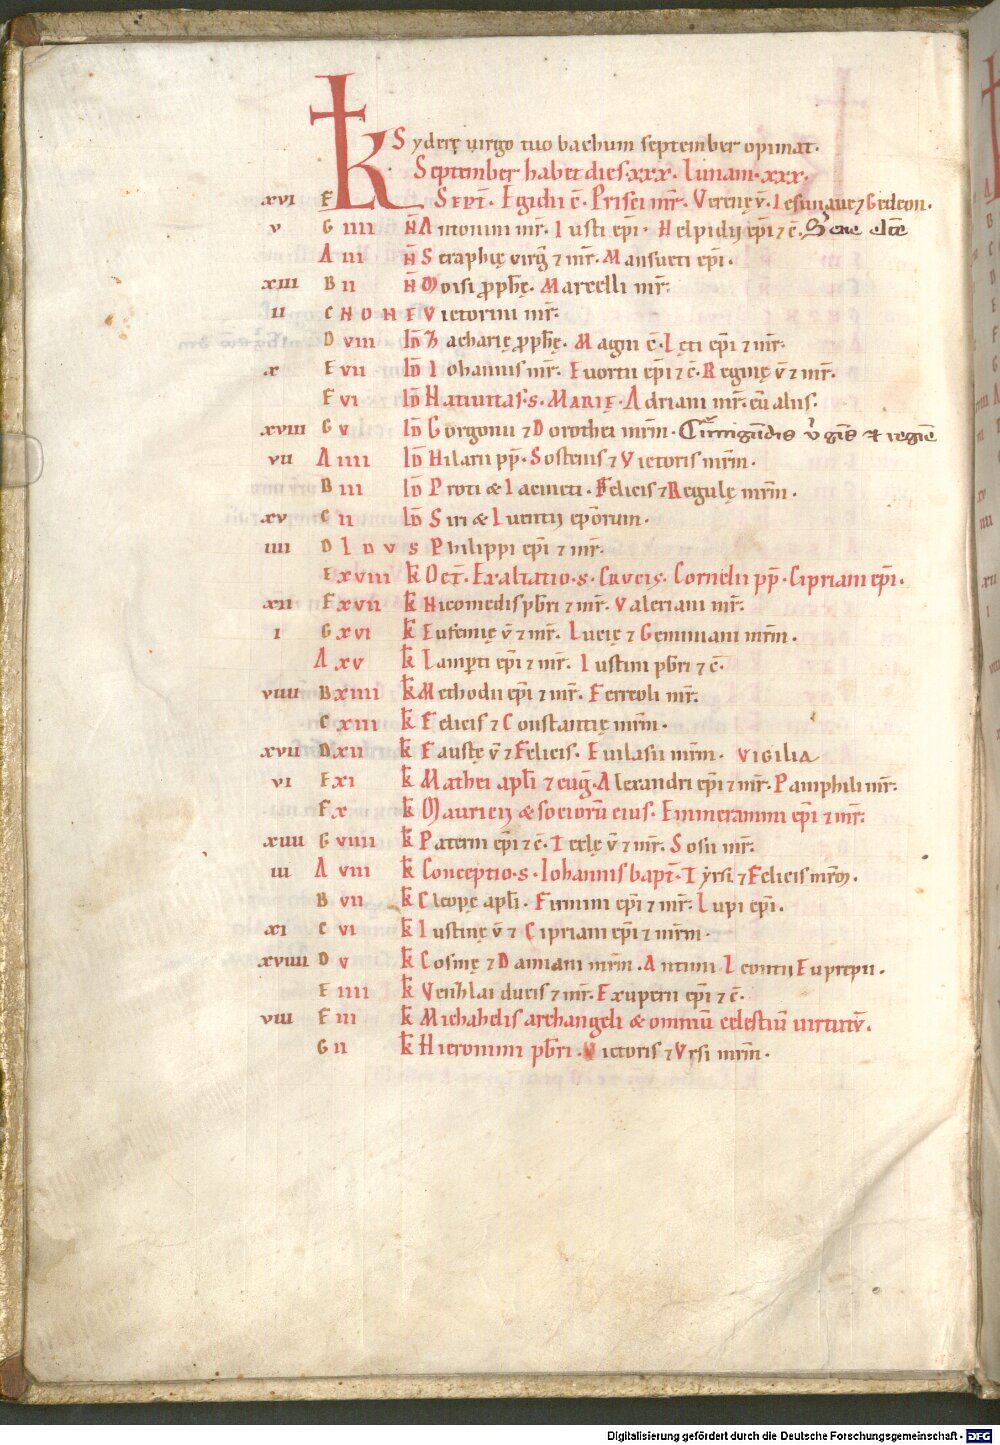 K Syderę uirgo tuo bachum september opimat.
September habet dies .xxx. Lunam .xxx.
xvi F SEPT̄. Egidii c̄. Prisci mr̄. Verenę v̄. Iesu naue ⁊ Gedeon.
v G iiii N̄ Antonini mr̄. Iusti ep̄i. Helpidij ep̄i ⁊ c̄.
A iii N̄ Seraphię virḡ ⁊ mr̄. Mansueti ep̄i.
xiii B ii N̄ Moisi pph̄ę. Marcelli mr̄.
ii C NONE Victorini mr̄.
D viii ID̄ Zacharię pph̄ę. Magni c̄. Lęti ep̄i ⁊ mr̄.
x E vii ID̄ Iohannis mr̄. Euortii ep̄i ⁊ c̄. Reginę v̄ ⁊ mr̄.
F vi ID̄ Natiuitas .s. MARIĘ. Adriani mr̄. cū aliis.
xviii G v ID̄ Gorgonii ⁊ Dorothei mr̄m.
vii A iiii ID̄ Hilarii pp̄. Sostenis ⁊ Victoris mr̄m.
B iii ID̄ Proti & Iacincti. Felicis ⁊ Regulę mr̄m.
xv C ii ID̄ Siri & Iuentij ep̄orum.
iiii D IDVS Philippi ep̄i ⁊ mr̄.
E xviii k̄ OCT̄. Exaltatio .s. Crvcis. Cornelii pp̄. Cipriani ep̄i.
xii F xvii k̄ Nicomedis pb̄ri ⁊ mr̄. Valeriani mr̄.
i G xvi k̄ Eufemię v̄ ⁊ mr̄. Lucię ⁊ Geminiani mr̄m.
A xv k̄ Lamp̄ti ep̄i ⁊ mr̄. Iustini pb̄ri ⁊ c̄.
viiii B xiiii k̄ Methodii ep̄i ⁊ mr̄. Ferreoli mr̄.
C xiii k̄ Felicis ⁊ Constantię mr̄m.
xvii D xii k̄ Faustę v̄ ⁊ Felicis. Euilasii mr̄m. VIGILIA
vi E xi k̄ Mathei apl̄i ⁊ euḡ. Alexandri ep̄i ⁊ mr̄. Pamphili mr̄.
F x k̄ Mauricij & socioru̅ eius. Emmerammi ep̄i ⁊ mr̄.
xiiii G viiii k̄ Paterni ep̄i ⁊ c̄. Teclę v̄ ⁊ mr̄. Sosii mr̄.
iii A viii k̄ Conceptio .s. Iohannis bapt̄. Tyrsi ⁊ Felicis mr̄m.
B vii k̄ Cleopę apl̄i. Firmini ep̄i ⁊ mr̄. Lupi ep̄i.
xi C vi k̄ Iustinę v̄ ⁊ Cipriani ep̄i ⁊ mr̄m.
xviiii D v k̄ Cosmę ⁊ Damiani mr̄m. Antimi Leontii Euprepii.
E iiii k̄ Venh̄lai ducis ⁊ mr̄. Exuperii ep̄i ⁊ c̄.
viii F iii k̄ Michahelis archangeli & omniu̅ celestiu̅ uirtutu̅.
G ii k̄ Hieronimi pb̄ri. Victoris ⁊ Vrsi mr̄m.
Digitalisierung gefördert durch die Deutsche Forschungsgemeinschaft - DFG